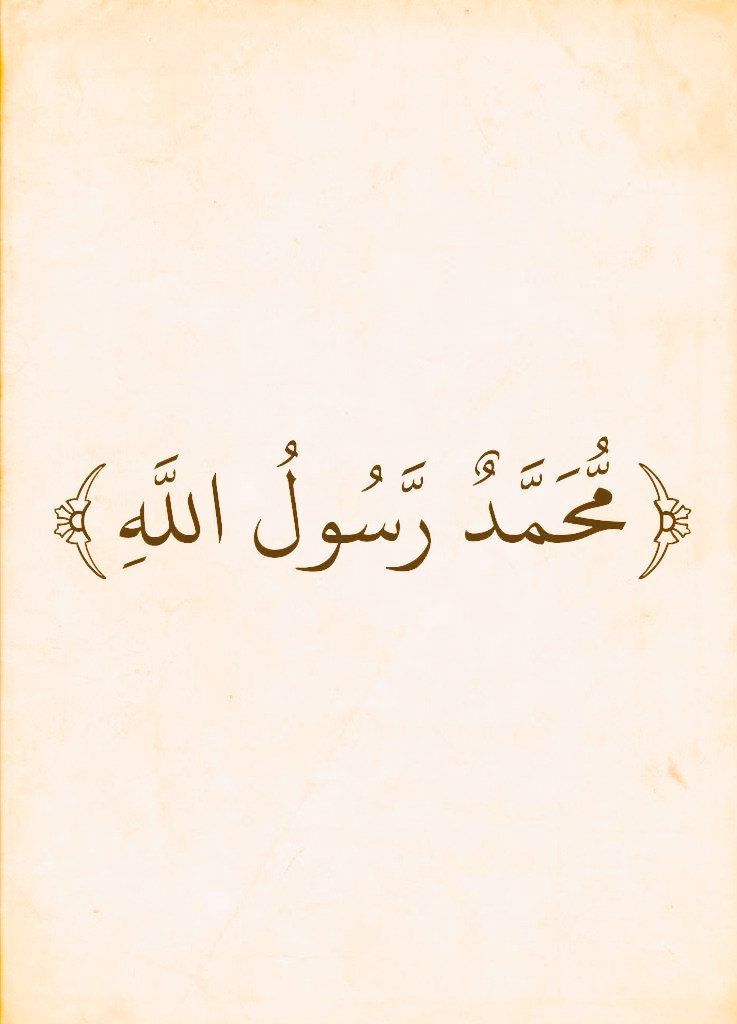 ﴿ مُّحَمَّدٌ رَّسُولُ اللَّهِ ﴾